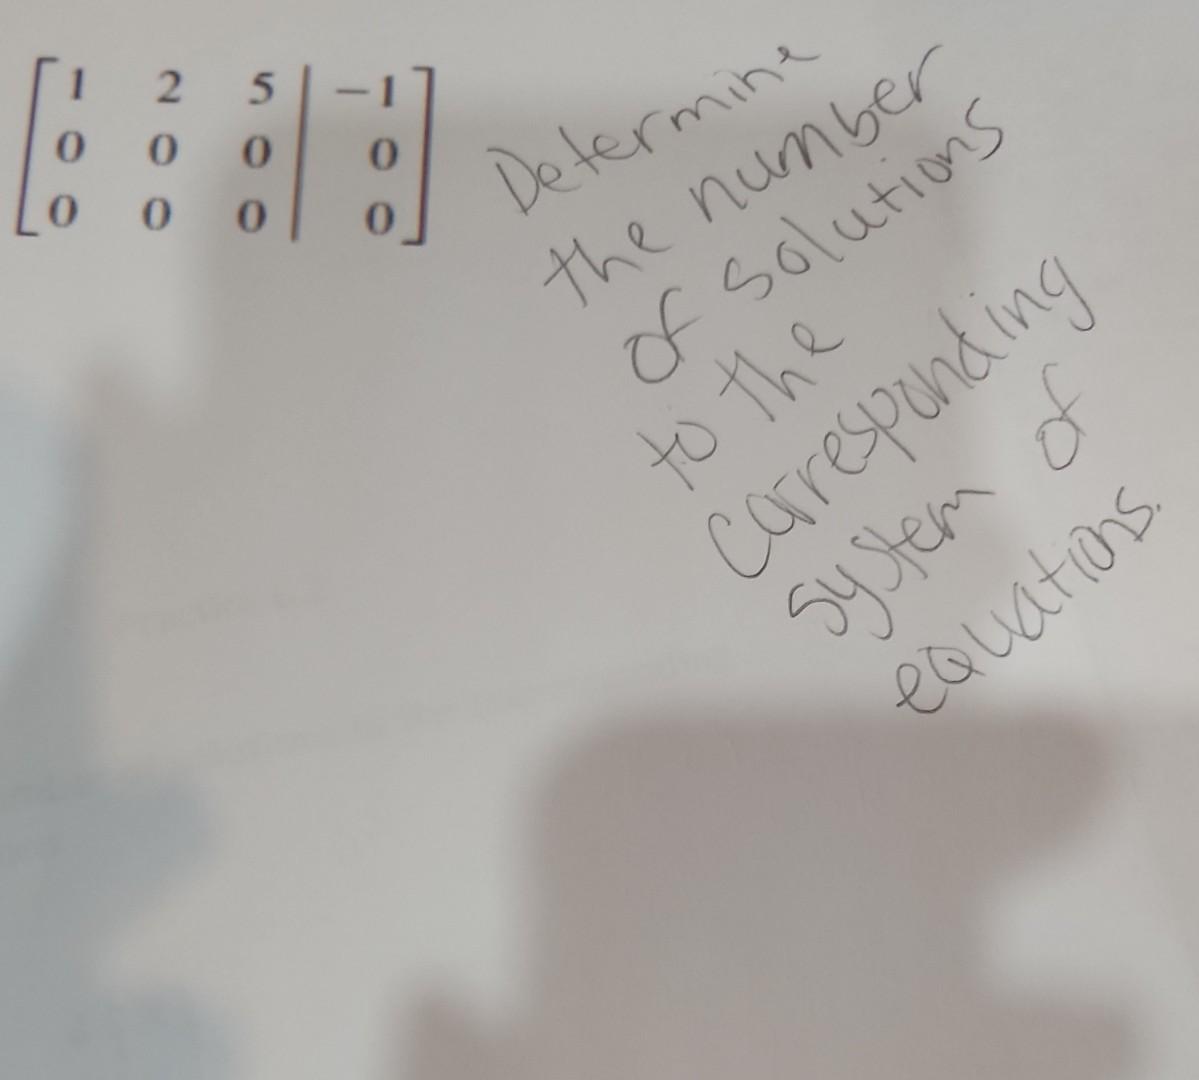 1 2 5 | −1
0 0 0 | 0
0 0 0 | 0
Determine
the number
of solutions
to the
corresponding
system of
equations.